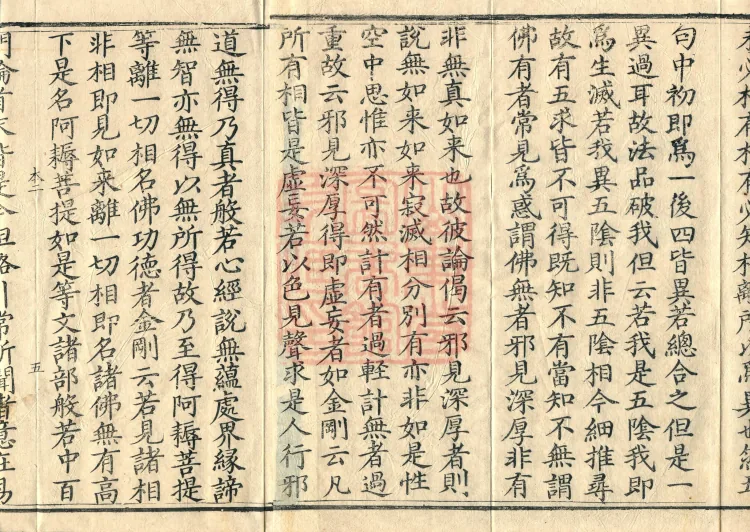 句中初即爲一後四皆異若總合之但是一
異過耳故法品破我但云若我是五陰我即
爲生滅若我異五陰則非五陰相今細推尋
故有五求皆不可得既知不有當知不無謂
佛有者常見爲惑謂佛無者邪見深厚非有
非無真如来也故彼論偈云邪見深厚者則
說無如来如来寂滅相分別有亦非如是性
空中思惟亦不可然計有者過輕計無者過
重故云邪見深厚得即虛妄者如金剛云凡
所有相皆是虛妄若以色見聲求是人行邪
道無得乃真者般若心經說無蘊處界緣諦
無智亦無得以無所得故乃至得阿耨菩提
等離一切相名佛功德者金剛云若見諸相
非相即見如来離一切相即名諸佛無有高
下是名阿耨菩提如是等文諸部般若中百
五